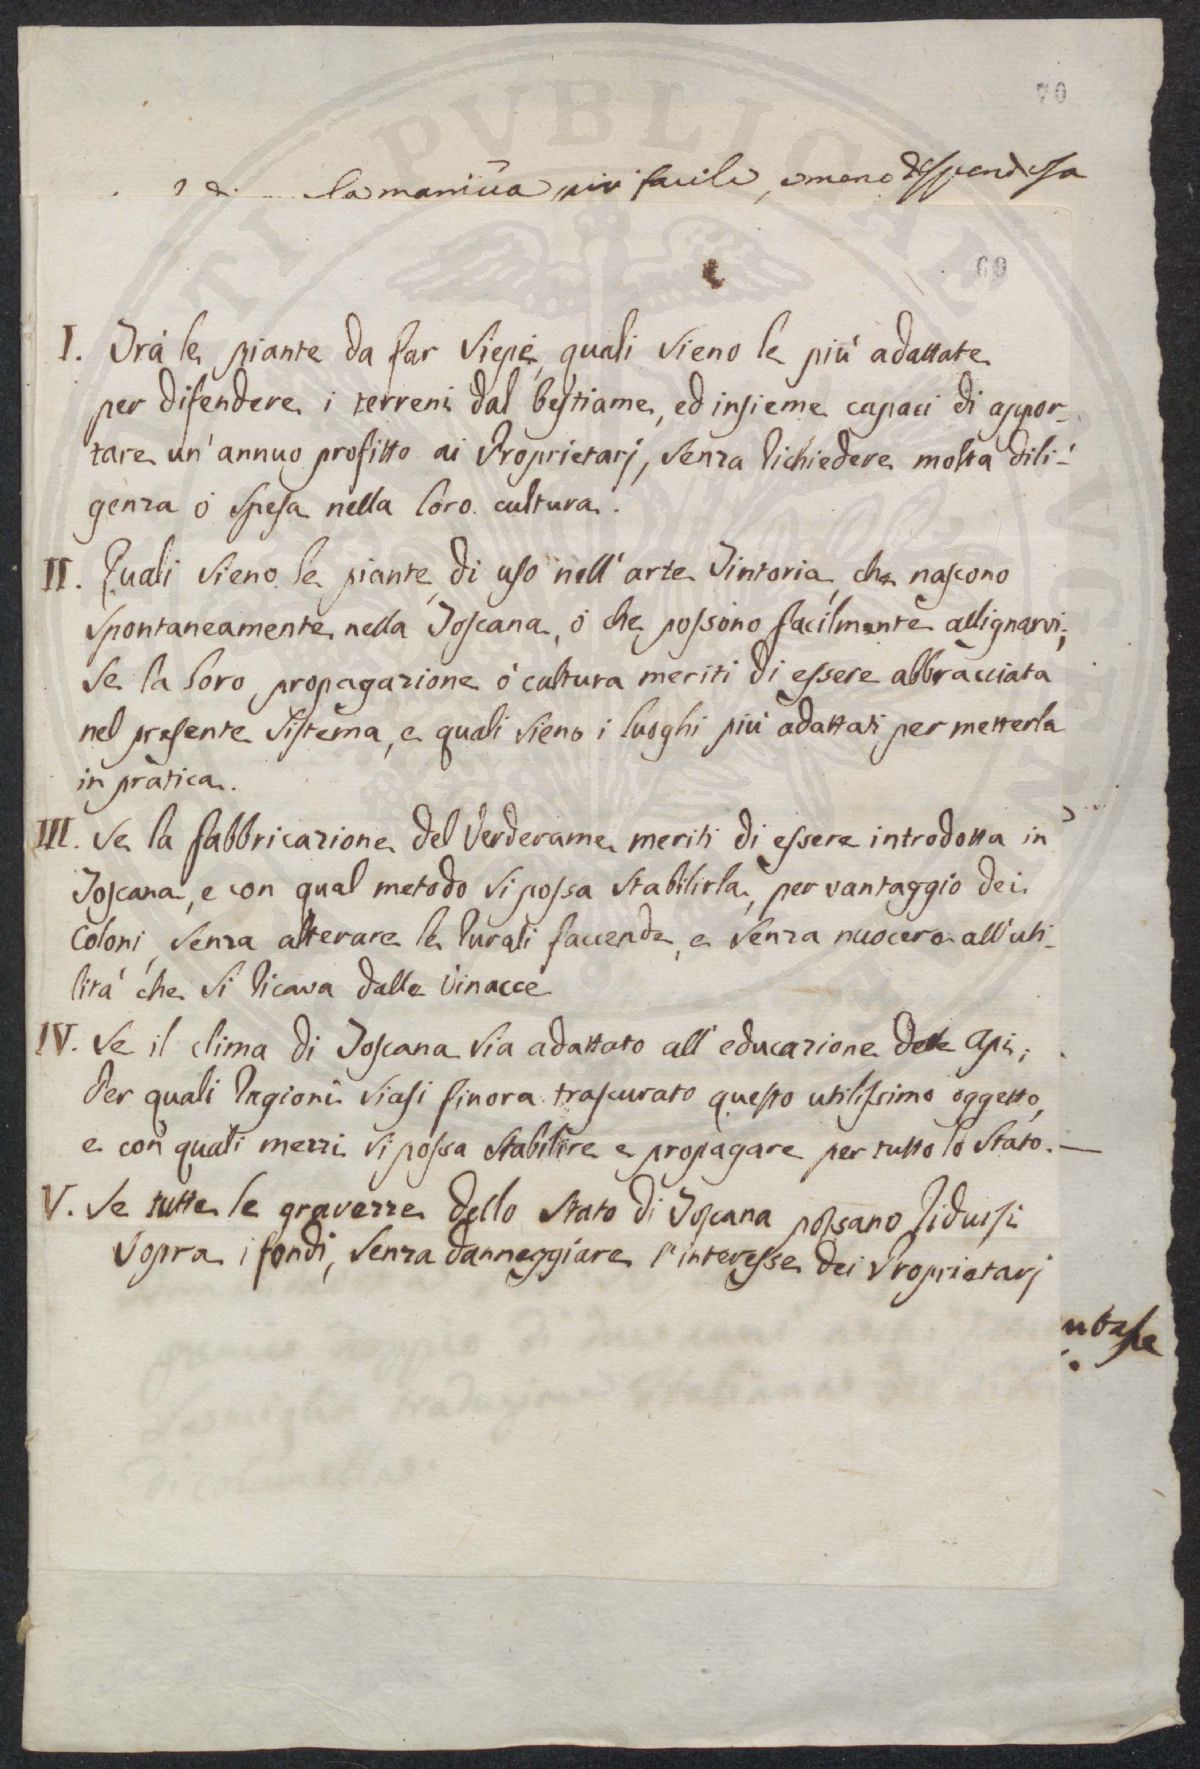 70
la maniera più facile, e meno dispendiosa
69
I. Trà le piante da far Siepe, quali sieno le più adattate
per difendere i terreni dal bestiame, ed insieme capaci di appor-
tare un'annuo profitto ai Proprietarj, senza richiedere molta dili-
genza ò spesa nella loro cultura.
II. Quali sieno le piante, di uso nell'arte Tintoria, che nascono
spontaneamente nella Toscana, ò che possono facilmente allignarvi;
Se la loro propagazione ò cultura meriti di essere abbracciata
nel presente Sistema, e quali sieno i luoghi più adattati per metterla
in pratica.
III. Se la fabbricazione del Verderame meriti di essere introdotta in
Toscana, e con qual metodo si possa stabilirla, per vantaggio dei
Coloni, senza alterare le rurali faccende, e senza nuocere all'uti-
lità che si ricava dalle Vinacce
IV. Se il clima di Toscana sia adattato all'educazione delle Api;
Per quali ragioni siasi finora trascurato questo utilissimo oggetto,
e con quali mezzi si possa stabilire e propagare per tutto lo Stato.—
V. Se tutte le gravezze dello Stato di Toscana possano ridursi
sopra i fondi, senza danneggiare l'interesse dei Proprietarj